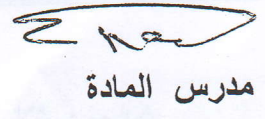 مدرس المادة